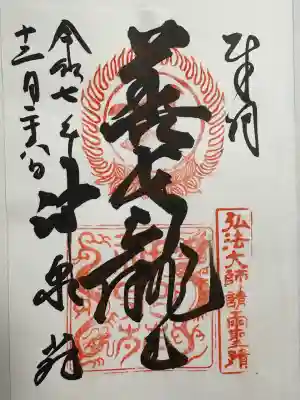 奉拝
弘法大師請雨聖蹟
善女龍王
令和七年
十二月二八日
神泉苑